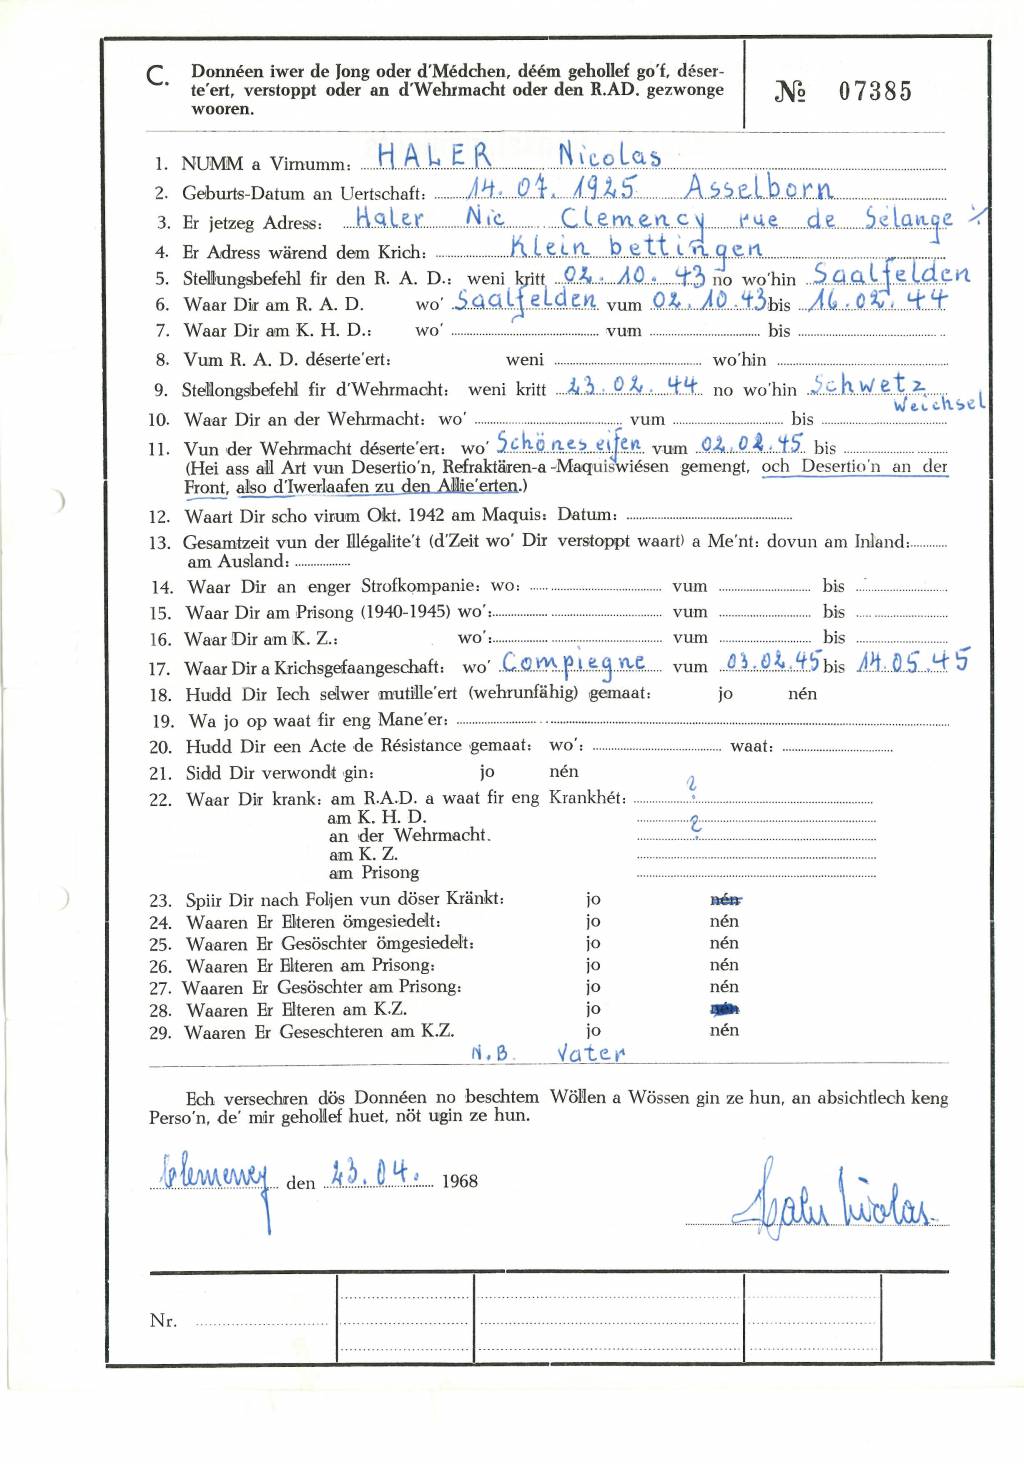 C. Donnéen iwer de Jong oder d'Médchen, déém gehollef go'f, déser-
te'ert, verstoppt oder an d'Wehrmacht oder den R.AD. gezwonge
wooren.
№ 07385
1. NUMM a Virnumm: HALER Nicolas
2. Geburts-Datum an Uertschaft: 14.07.1925 Asselborn
3. Er jetzeg Adress: Haler Nic Clemency rue de Sélange %
4. Er Adress wärend dem Krich: Klein bettingen
5. Stellungsbefehl fir den R. A. D.: weni kritt 02.10.43 no wo'hin Saalfelden
6. Waar Dir am R. A. D. wo' Saalfelden vum 02.10.43 bis 16.02.44
7. Waar Dir am K. H. D.: wo' vum bis
8. Vum R. A. D. déserte'ert: weni wo'hin
9. Stellongsbefehl fir d'Wehrmacht: weni kritt 23.02.44 no wo'hin Schwetz
Weichsel
10. Waar Dir an der Wehrmacht: wo' vum bis
11. Vun der Wehrmacht déserte'ert: wo' Schöneseifen vum 02.02.45 bis
(Hei ass all Art vun Desertio'n, Refraktären-a-Maquiswiésen gemengt, och Desertio'n an der
Front, also d'Iwerlaafen zu den Allie'erten.)
12. Waart Dir scho virum Okt. 1942 am Maquis: Datum:
13. Gesamtzeit vun der Illégalite't (d'Zeit wo' Dir verstoppt waart) a Me'nt: dovun am Inland:
am Ausland:
14. Waar Dir an enger Strofkompanie: wo: vum bis
15. Waar Dir am Prisong (1940-1945) wo': vum bis
16. Waar Dir am K. Z.: wo': vum bis
17. Waar Dir a Krichsgefaangeschaft: wo' Compiegne vum 03.02.45 bis 14.05.45
18. Hudd Dir Iech selwer mutille'ert (wehrunfähig) gemaat: jo nén
19. Wa jo op waat fir eng Mane'er:
20. Hudd Dir een Acte de Résistance gemaat: wo': waat:
21. Sidd Dir verwondt gin: jo nén
22. Waar Dir krank: am R.A.D. a waat fir eng Krankhét: ?
am K. H. D.
an der Wehrmacht. ?
am K. Z.
am Prisong
23. Spiir Dir nach Foljen vun döser Kränkt: jo nén
24. Waaren Er Elteren ömgesiedelt: jo nén
25. Waaren Er Gesöschter ömgesiedelt: jo nén
26. Waaren Er Elteren am Prisong: jo nén
27. Waaren Er Gesöschter am Prisong: jo nén
28. Waaren Er Elteren am K.Z. jo nén
29. Waaren Er Geseschteren am K.Z. jo nén
N.B. Vater
Ech versechren dös Donnéen no beschtem Wöllen a Wössen gin ze hun, an absichtlech keng
Perso'n, de' mir gehollef huet, nöt ugin ze hun.
Clemency den 23.04. 1968
Haler Nicolas
Nr.